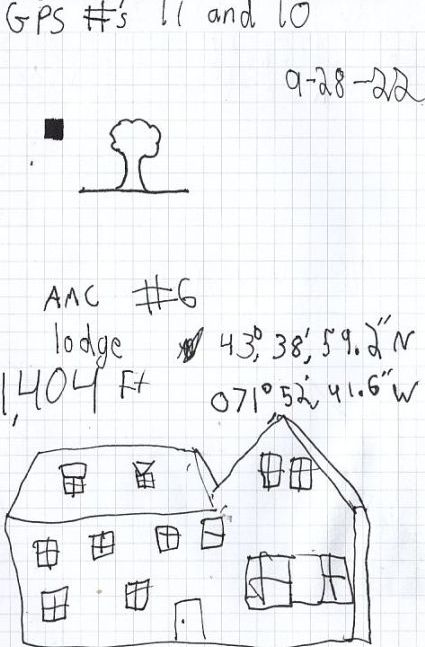 GPS #'s 11 and 10
9-28-22
AMC #6
lodge 43°, 38', 59.2" N
1,404 Ft 071° 52' 41.6" W